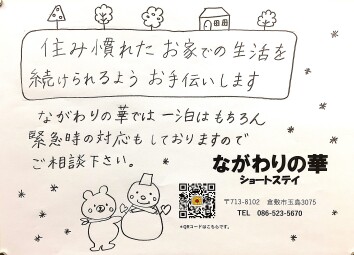 住み慣れた お家での 生活を
続けられるよう お手伝いします
ながわりの華では 一泊はもちろん
緊急時の対応も しておりますので
ご相談下さい。
ながわりの華
ショートステイ
〒713-8102　倉敷市玉島3075
TEL　086-523-5670
*QRコードはこちらです。